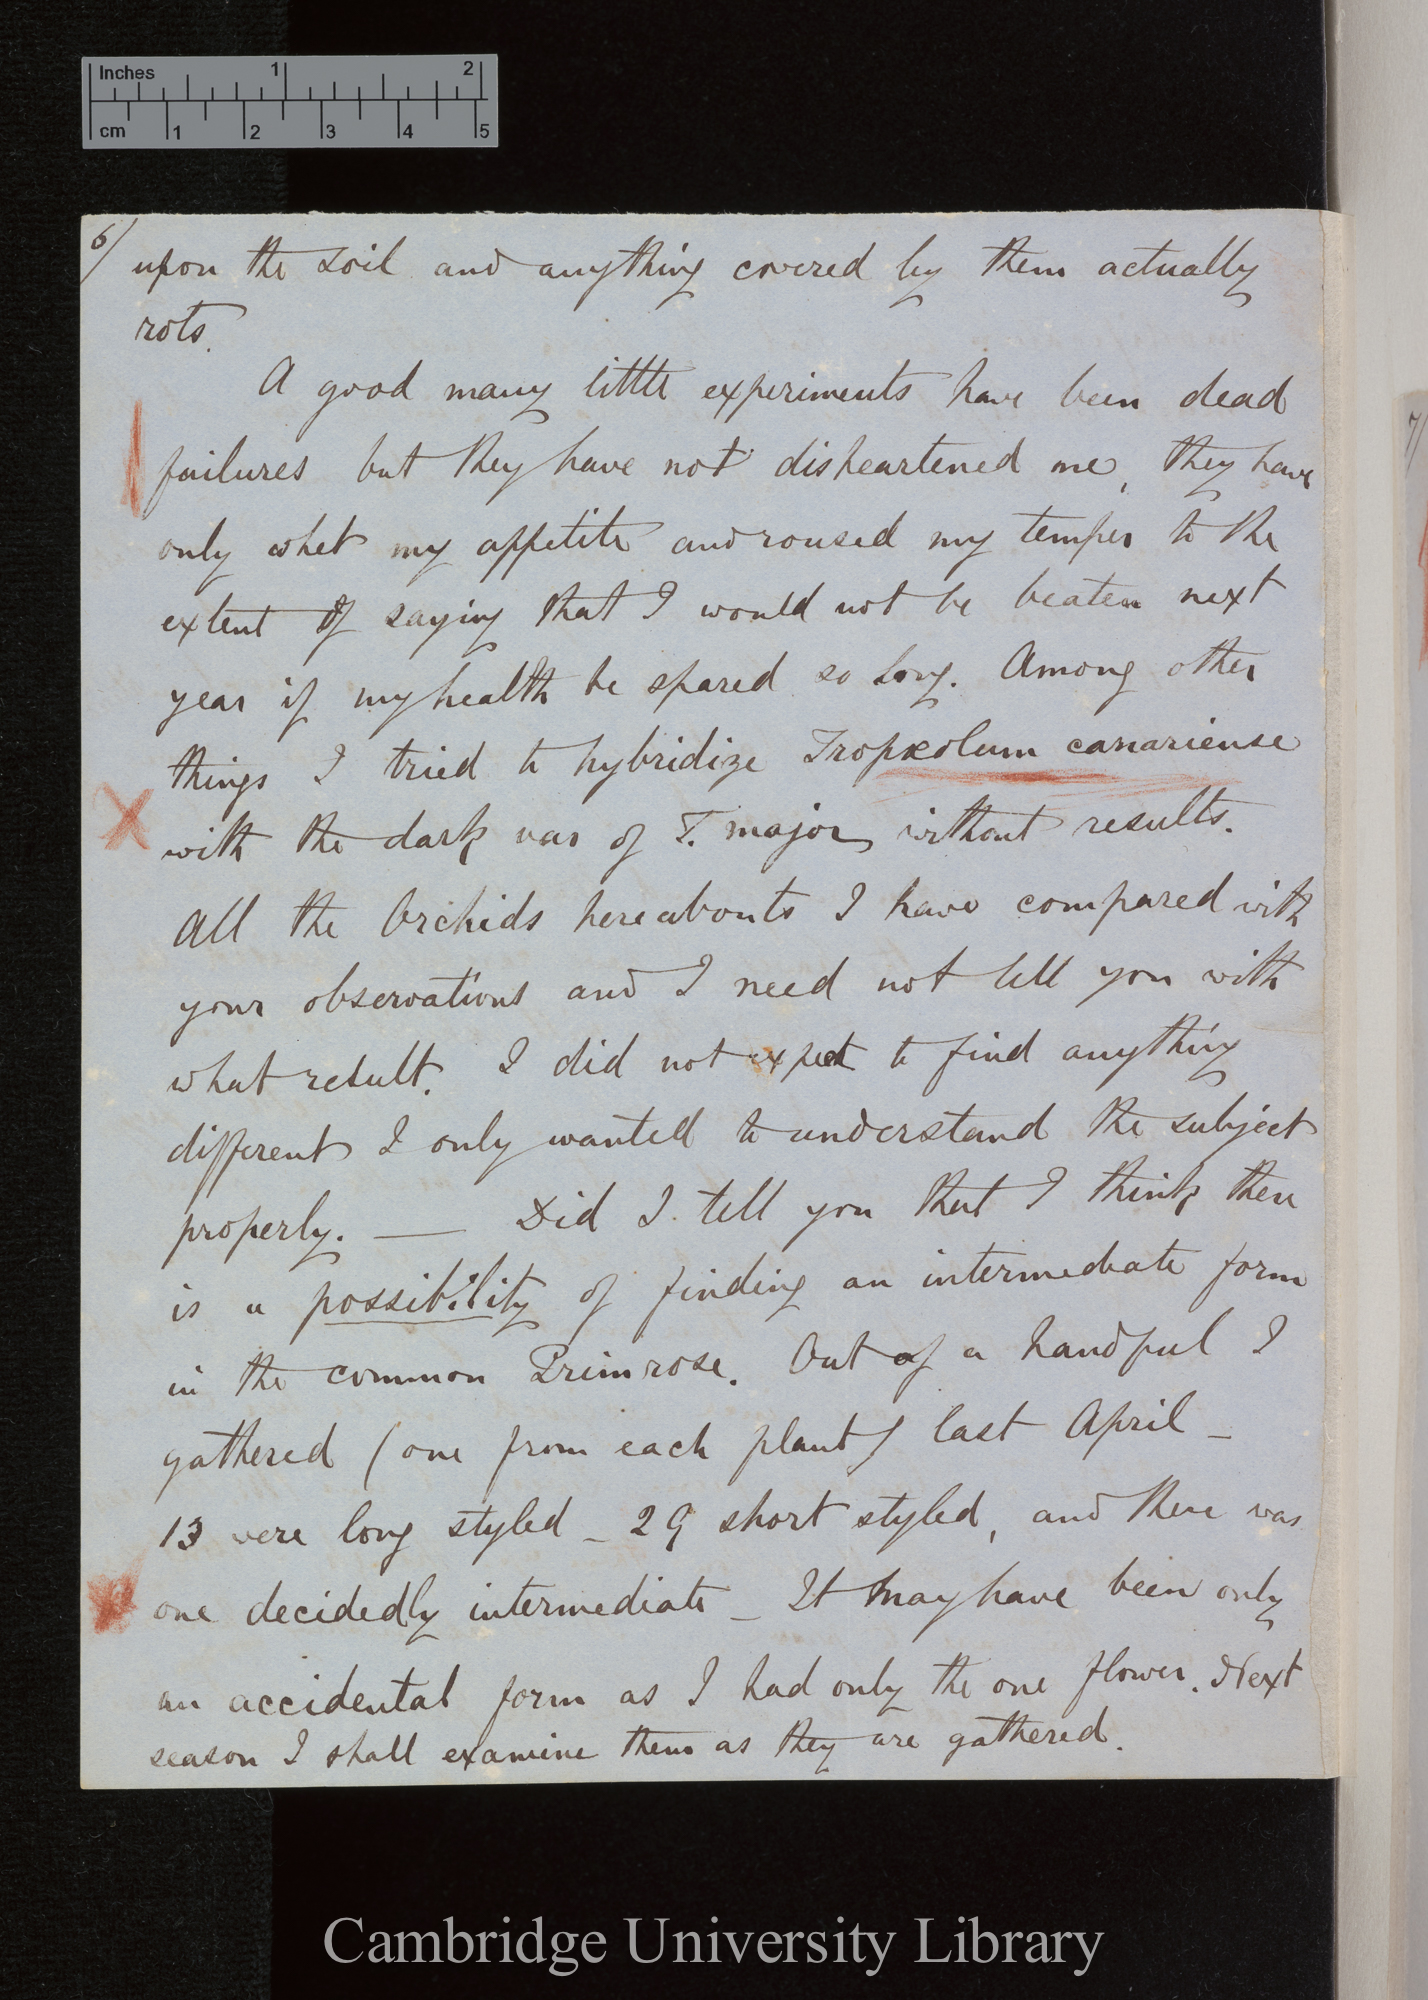 Inches 1 2
cm 1 2 3 4 5
6/
upon the soil and anything covered by them actually
rots.
A good many little experiments have been dead
failures but they have not disheartened me, they have
only whet my appetite and roused my temper to the
extent of saying that I would not be beaten next
year if my health be spared so long. Among other
things I tried to hybridize Tropæolum canariense
with the dark var of T. major, without results.
All the Orchids hereabouts I have compared with
your observations and I need not tell you with
what result. I did not expect to find anything
different I only wanted to understand the subject
properly. — Did I tell you that I think there
is a possibility of finding an intermediate form
in the common Primrose. Out of a handful I
gathered (one from each plant) last April –
13 were long styled – 29 short styled, and there was
one decidedly intermediate – It may have been only
an accidental form as I had only the one flower. Next
season I shall examine them as they are gathered.
7/
Cambridge University Library